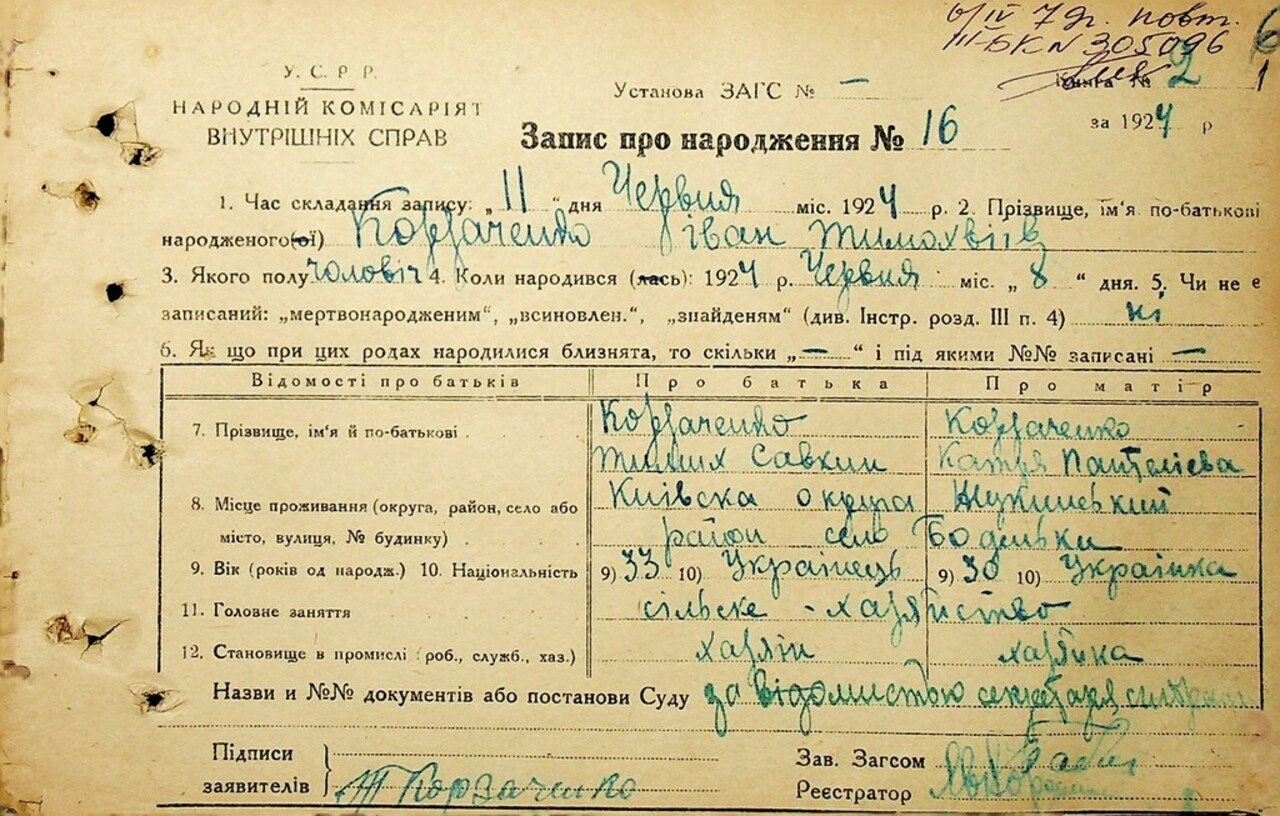 6/IV 7 г. повт.
III-БК № 305096
6
1
У. С. Р. Р.
НАРОДНІЙ КОМІСАРІЯТ
ВНУТРІШНІХ СПРАВ
Установа ЗАГС № —
Книга № 2
Запис про народження № 16
за 1924 р
1. Час складання запису: „ 11 “ дня Червня міс. 1924 р. 2. Прізвище, ім'я по-батькові
народженого(ої) Корзаченко Іван Тимохвіїв
3. Якого полу чоловіч 4. Коли народився (лась): 1924 р. Червня міс. „ 8 “ дня. 5. Чи не є
записаний: „мертвонародженим“, „всиновлен.“, „знайденям“ (див. Інстр. розд. III п. 4) ні
6. Як що при цих родах народилися близнята, то скільки „ — “ і під якими №№ записані —
Відомості про батьків Про батька Про матір
7. Прізвище, ім'я й по-батькові Корзаченко Корзаченко
Тимиш Савкин Катря Пантелієва
8. Місце проживання (округа, район, село або Київска округа Жукинський
місто, вулиця, № будинку) район село Боденьки
9. Вік (років од народж.) 10. Національність 9) 33 10) Українець 9) 30 10) Українка
11. Головне заняття сільске - хазяйство
12. Становище в промислі (роб., служб., хаз.) хазяін хазяйка
Назви и №№ документів або постанови Суду за відомистью секретаря
Підписи
заявителів } Т Корзаченко
Зав. Загсом
Реєстратор